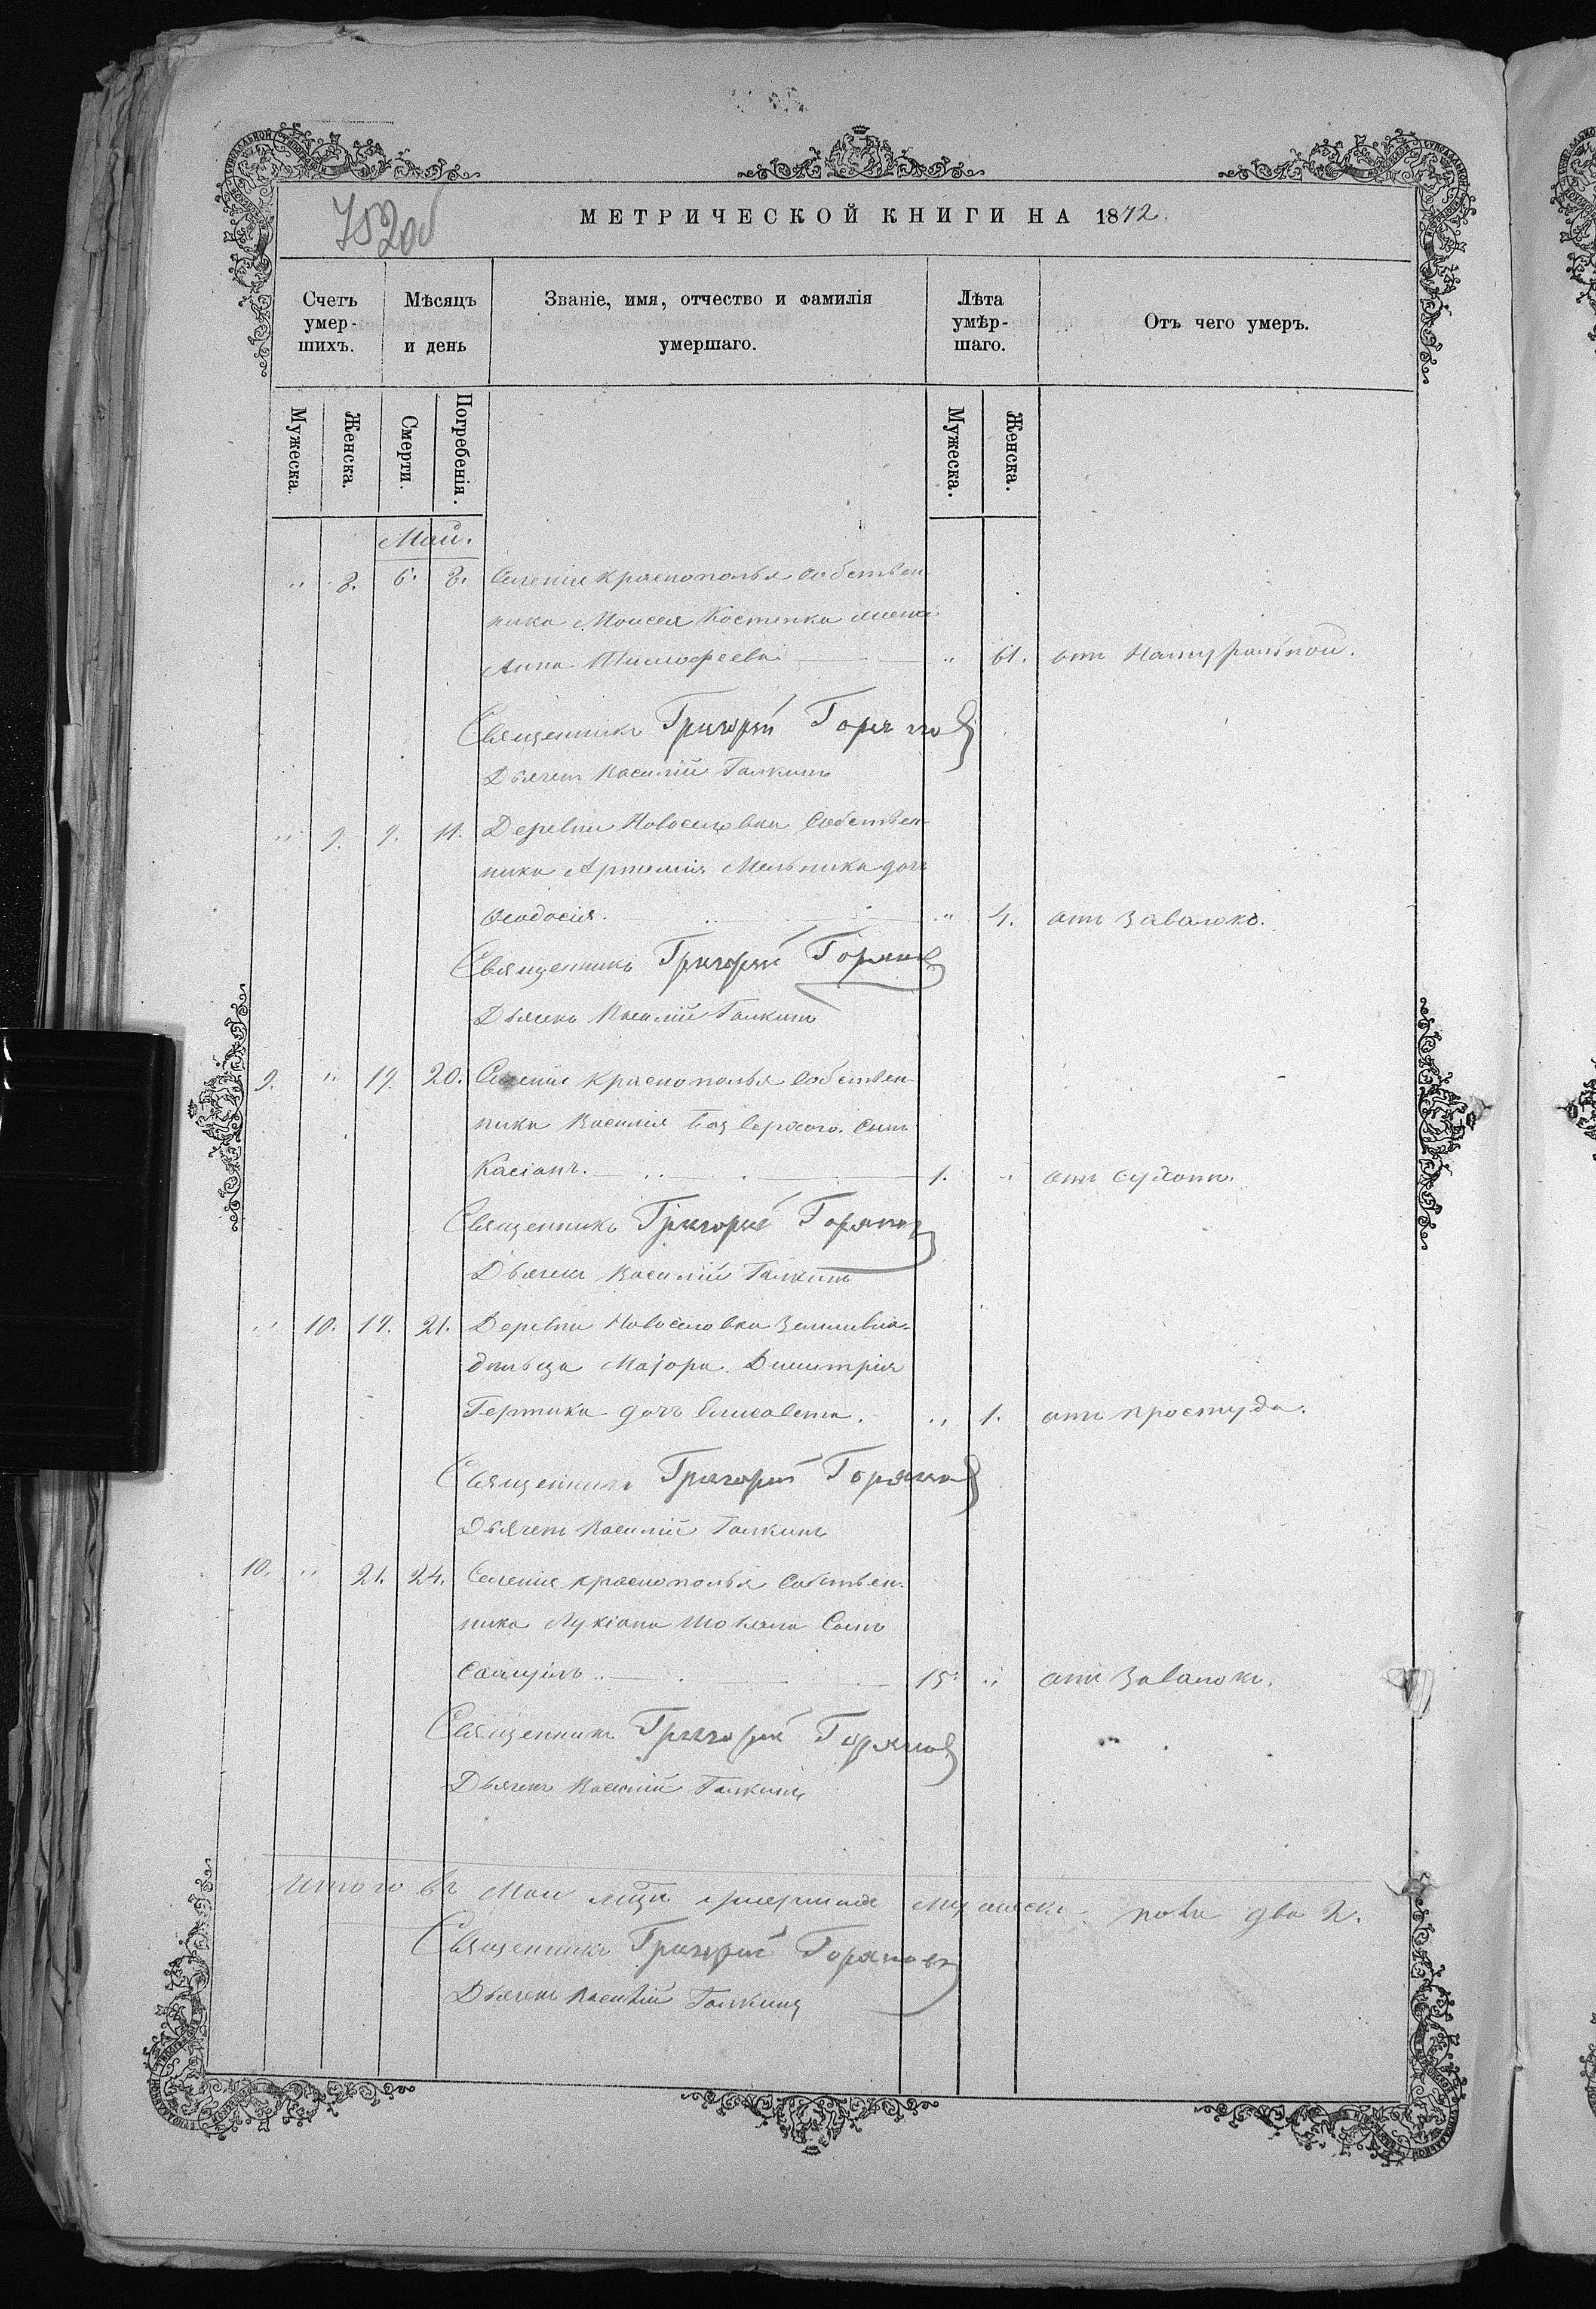 752об
МЕТРИЧЕСКОЙ КНИГИ НА 1872.
Счетъ умер-шихъ.
Мѣсяцъ и день
Званіе, имя, отчество и фамилія умершаго.
Лѣта умѣр-шаго.
Отъ чего умеръ.
Мужеска. Женска. Смерти. Погребенія. Мужеска. Женска.
Май.
" 8. 6. 8. Селенія Краснополья собствен-
ника Моисея Костенка жена
Анна Тимофеева " 61. отъ Натуральной.
Священникъ Григорій Горяновъ
Дьячекъ Василій Галкинъ
" 9. 9. 11. Деревни Новоселовки Собствен-
ника Артемія Мельника дочь
Ѳеодосія. " 4. отъ Завалокъ.
Священникъ Григорій Горяновъ
Дьячекъ Василій Галкинъ
9. " 19. 20. Селенія Краснополья собствен-
ника Василія сынъ
Касіанъ. 1. " отъ Сухотъ.
Священникъ Григорій Горяновъ
Дьячекъ Василій Галкинъ
" 10. 19. 21. Деревни Новоселовки Землевла-
дѣльца Маіора Димитрія
Гертика дочь Елисавета. " 1. отъ простуда.
Священникъ Григорій Горяновъ
Дьячекъ Василій Галкинъ
10. " 21. 24. Селенія Краснополья Собствен-
ника Лукіана сынъ
Самуилъ 15. " отъ Завалокъ.
Священникъ Григорій Горяновъ
Дьячекъ Василій Галкинъ
Итого въ Маи мцѣ умершихъ мужеска пола два 2.
Священникъ Григорій Горяновъ
Дьячекъ Василій Галкинъ